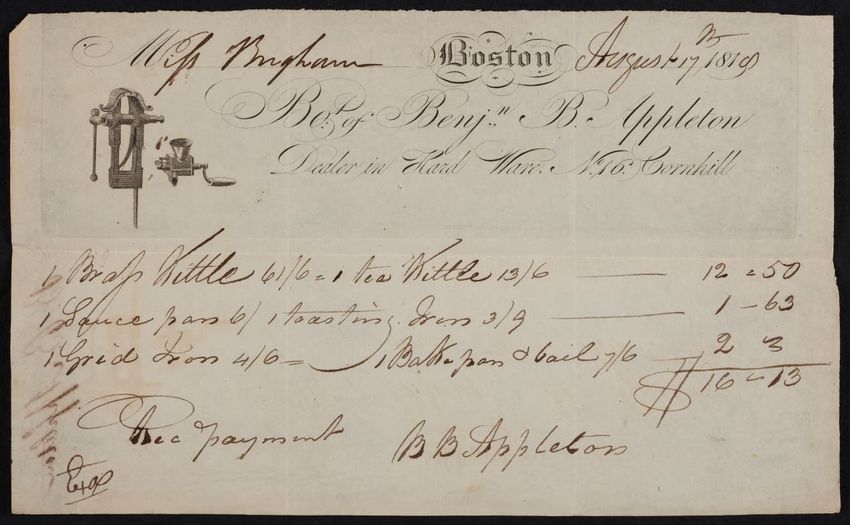 Miss Brigham Boston August 17th 1819
Bot. of Benjn. B. Appleton
Dealer in Hard Ware. No. 16. Cornhill
1 Brass Kittle 61/6 = 1 tea Kittle 13/6 — 12 = 50
1 Sauce pan 6/ 1 toasting Iron 3/9 — 1 – 63
1 Grid Iron 4/6 = 1 Bake pan & bail 7/6 — 2 3
$ 16 – 13
Rec payment B B Appleton